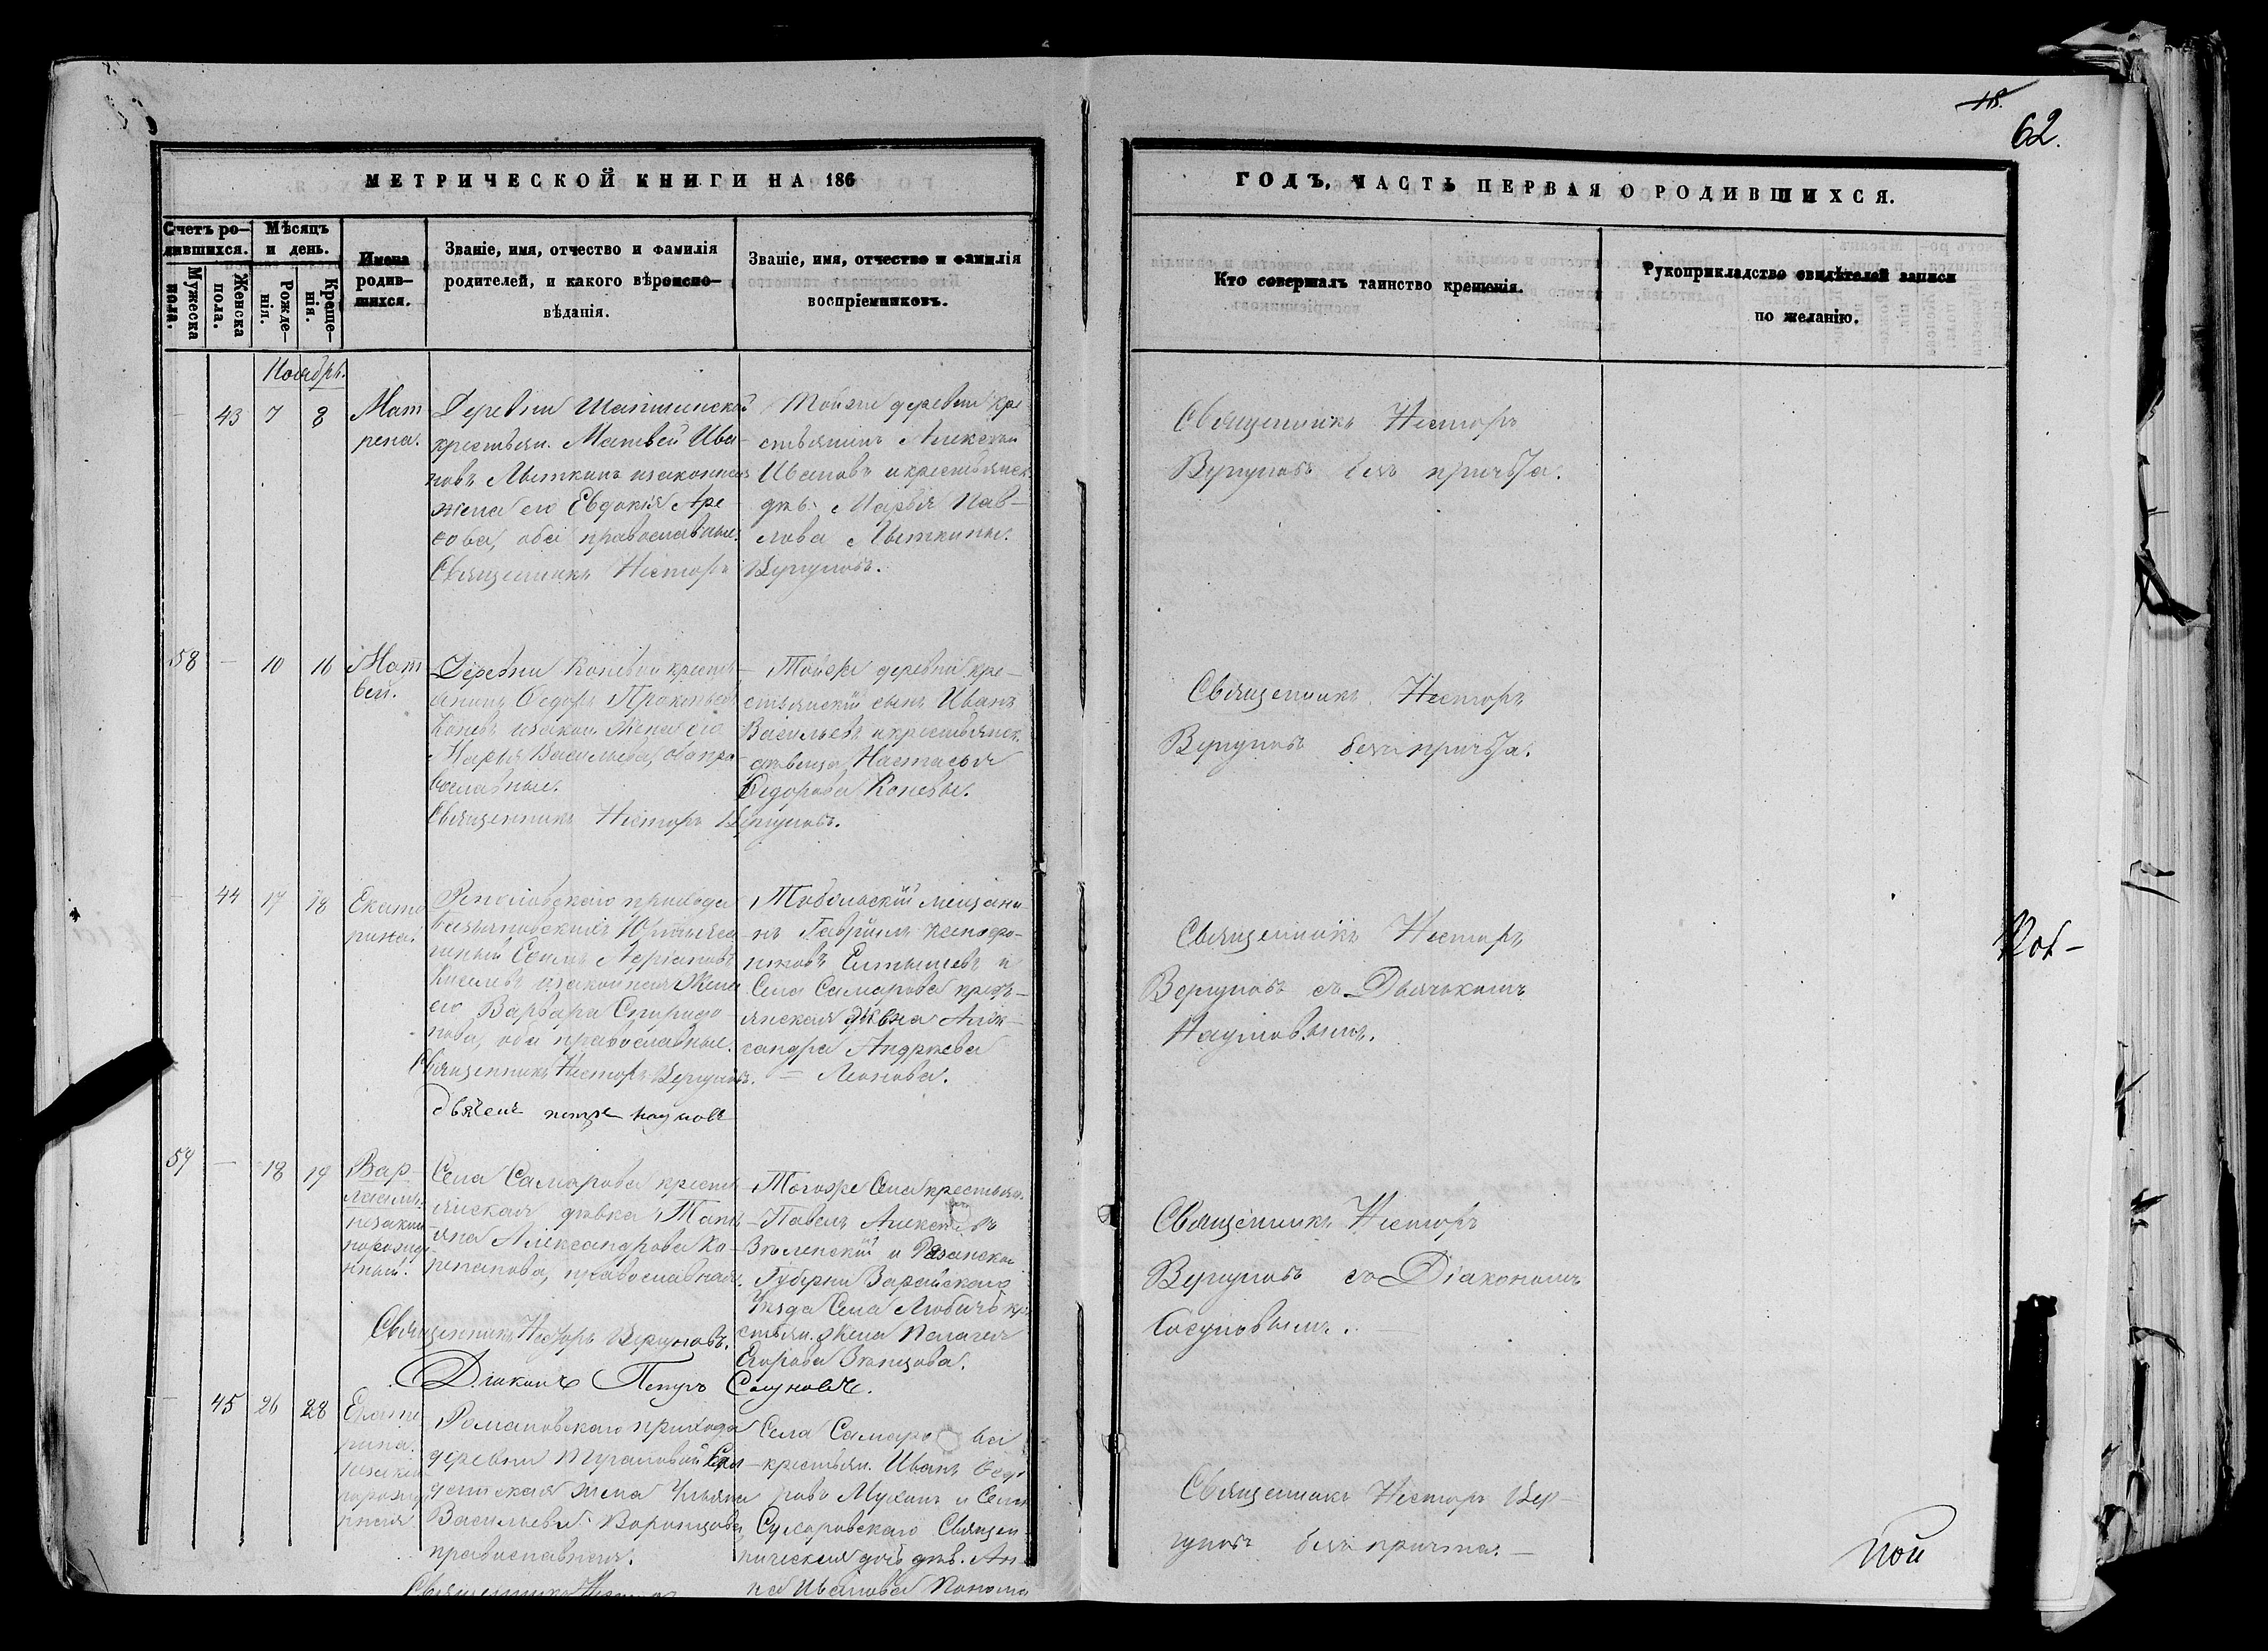 18.
62.
МЕТРИЧЕСКОЙ КНИГИ НА 186
ГОДЪ, ЧАСТЬ ПЕРВАЯ О РОДИВШИХСЯ.
Счетъ ро-
дившихся.
Мужеска
пола.
Женска
пола.
Мѣсяцъ
и день.
Рожде-
нія.
Креще-
нія.
Имена
родив-
шихся.
Званіе, имя, отчество и фамилія
родителей, и какого вѣроиспо-
вѣданія.
Званіе, имя, отчество и фамилія
воспріемниковъ.
Кто совершалъ таинство крещенія.
Рукоприкладство свидѣтелей записи
по желанію.
Ноябрь.
- 43 7 8
Мат
рена.
Деревни Шапшинской
крестьян. Матвей Ива-
новъ Лыткинъ изаконная
жена его Евдокія Аре
ова, оба православные.
Священникъ Несторъ Вергуновъ.
Тойже деревни кре
стьянинъ Алексѣй
Ивановъ и крестьянск.
дѣв. Марья Пав-
лова Лыткины.
Священникъ Несторъ
Вергуновъ безъ причта.
58 - 10 16
Мат
вей.
Деревни Коневой кресть-
янинъ Ѳедоръ Прокопьевъ
Коневъ изакон. жена его
Марья Васильева, оба пра-
вославные.
Священникъ Несторъ Вергуновъ.
Тойже деревни кре-
стьянскій сынъ Иванъ
Васильевъ и крестьянск.
дѣвица Настасья
Ѳедорова Коневы.
Священникъ Несторъ
Вергуновъ безъ причта.
- 44 17 18
Екате
рина.
Реполовскаго прихода
Юртъ
Киселевъ изаконная жена
его Варвара Спиридо-
нова, оба православные.
Священникъ Несторъ Вергуновъ.
Дьячекъ петръ наумовъ
Тобольскій мещани-
нъ Гавріилъ Ксенофо-
нтовъ и
Села Самарова крест-
янская дѣвка Алек-
сандра Андреева
Леонова.
Священникъ Несторъ
Вергуновъ съ Дьячькомъ
Наумовымъ.
59 - 18 19
Вар-
лаамъ.
незакон
норожде
нный.
Села Самарова кресть-
янская дѣвка Тать-
яна Александрова Ко-
репанова, православная.
Священникъ Несторъ Вергуновъ.
Діаконъ Петръ Сосуновъ.
Тогоже Села крестьян.
Павелъ
Зѣленскій и Рязанской
Губерніи Зарайскаго
Уѣзда Села Любичъ кр
стьян. жена Пелагея
Егорова
Священникъ Несторъ
Вергуновъ со Діакономъ
Сосуновымъ.
- 45 26 28
Екате
рина.
незакон
норожде
нная
Романовскаго прихода
деревни
жена Ульяна
Васильева Воронцова
православная.
Священникъ
Села Самаро ва
крестьян. Иванъ Ѳедо
ровъ Мухинъ и Села
Самаровскаго Священ-
ническая дочь дѣв. Ан-
на Иванова
Священникъ Несторъ Вер-
гуновъ безъ причта.